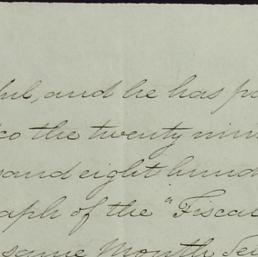 ful, and he has pa
co the twenty nin
sand eight hund
aph of the "Fiscal
same Month, Se